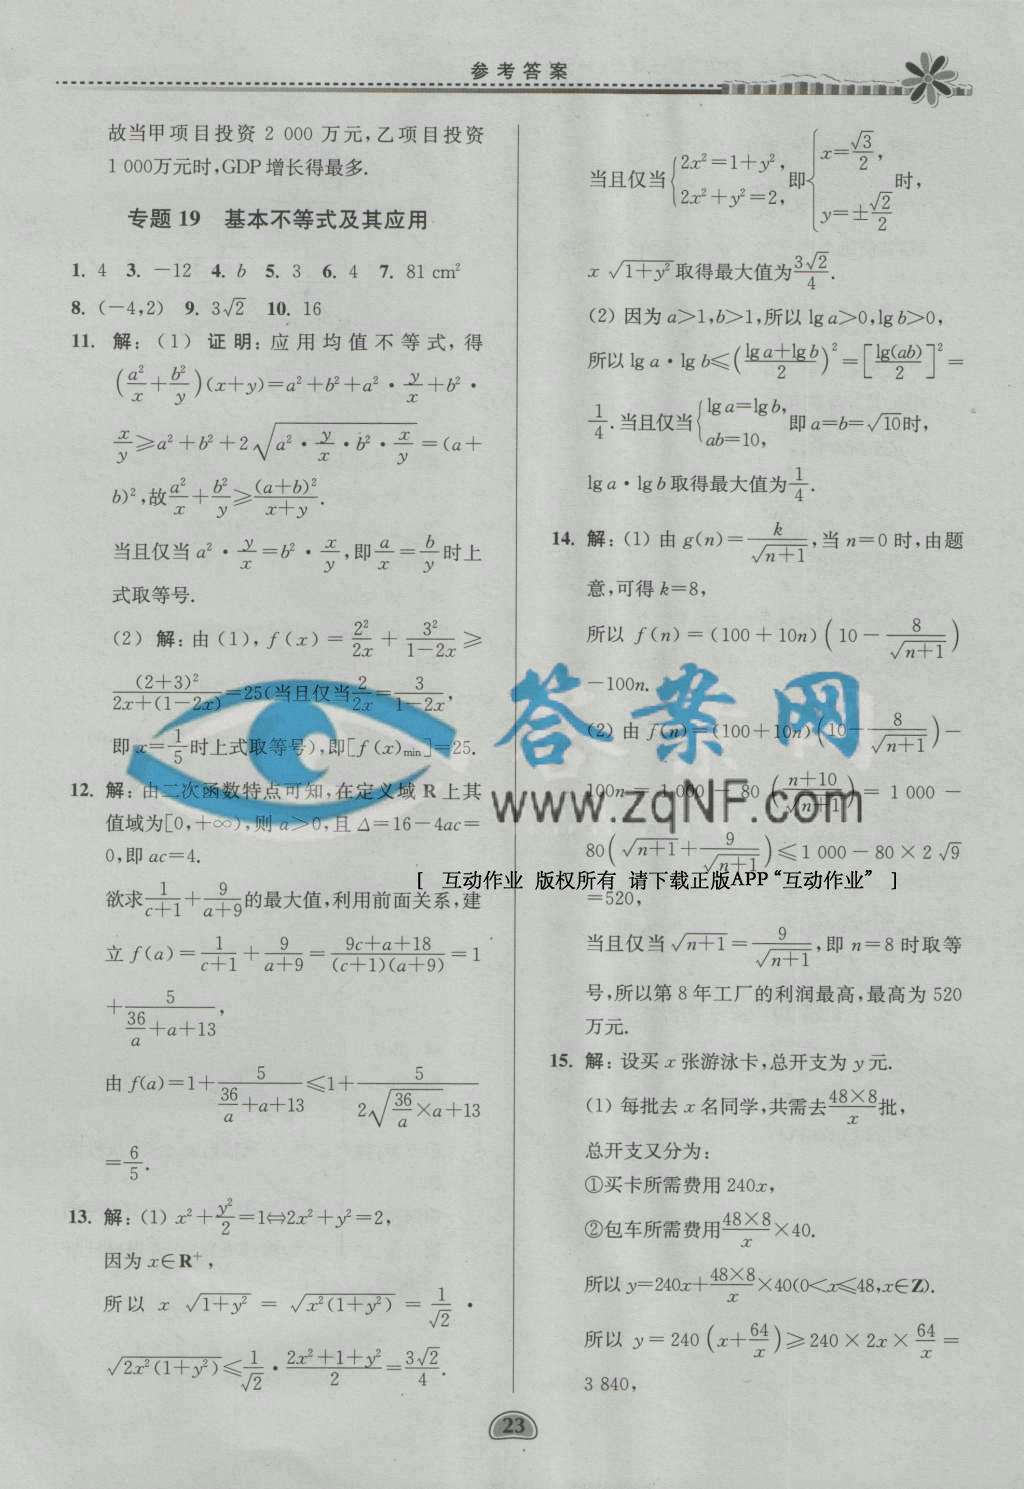 参考答案
故当甲项目投资 2 000 万元,乙项目投资
1 000万元时,GDP 增长得最多.
专题 19 基本不等式及其应用
1. 4 3. -12 4. b 5. 3 6. 4 7. 81 cm²
8. (-4,2) 9. 3√2 10. 16
11. 解:(1) 证明:应用均值不等式,得
(a²/x+b²/y)(x+y)=a²+b²+a²·y/x+b²·
x/y≥a²+b²+2√(a²·y/x·b²·x/y)=(a+
b)²,故a²/x+b²/y≥(a+b)²/(x+y).
当且仅当 a²·y/x=b²·x/y,即a/x=b/y时上
式取等号.
(2) 解:由(1),f(x)=2²/2x+3²/(1-2x)≥
(2+3)²/(2x+(1-2x))=25(当且仅当2/2x=3/(1-2x),
即 x=1/5时上式取等号),即[f(x)min]=25.
12. 解:由二次函数特点可知,在定义域 R 上其
值域为[0,+∞),则 a>0,且 Δ=16-4ac=
0,即 ac=4.
欲求1/(c+1)+9/(a+9)的最大值,利用前面关系,建
立 f(a)=1/(c+1)+9/(a+9)=(9c+a+18)/((c+1)(a+9))=1
+5/(36/a+a+13),
由 f(a)=1+5/(36/a+a+13)≤1+5/(2√(36/a×a)+13)
=6/5.
13. 解:(1) x²+y²/2=1⇔2x²+y²=2,
因为 x∈R⁺,
所以 x√(1+y²)=√(x²(1+y²))=1/√2·
√(2x²(1+y²))≤1/√2·(2x²+1+y²)/2=3√2/4.
当且仅当{2x²=1+y², 2x²+y²=2,即{x=√3/2, y=±√2/2时,
x√(1+y²)取得最大值为3√2/4.
(2) 因为 a>1,b>1,所以 lg a>0,lg b>0,
所以 lg a·lg b≤((lg a+lg b)/2)²=[lg(ab)/2]²=
1/4.当且仅当{lg a=lg b, ab=10,即 a=b=√10时,
lg a·lg b取得最大值为1/4.
14. 解:(1) 由 g(n)=k/√(n+1),当 n=0 时,由题
意,可得 k=8,
所以 f(n)=(100+10n)(10-8/√(n+1))
-100n.
(2) 由 f(n)=(100+10n)(10-8/√(n+1))-
100n=1 000-80((n+10)/√(n+1))=1 000-
80(√(n+1)+9/√(n+1))≤1 000-80×2√9
=520,
当且仅当√(n+1)=9/√(n+1),即 n=8 时取等
号,所以第 8 年工厂的利润最高,最高为 520
万元.
15. 解:设买 x 张游泳卡,总开支为 y 元.
(1) 每批去 x 名同学,共需去(48×8)/x批,
总开支又分为:
①买卡所需费用 240x,
②包车所需费用(48×8)/x×40.
所以 y=240x+(48×8)/x×40(0<x≤48,x∈Z).
所以 y=240(x+64/x)≥240×2x×64/x=
3 840,
答案网
www.zqNF.com
[ 互动作业 版权所有 请下载正版APP“互动作业” ]
23